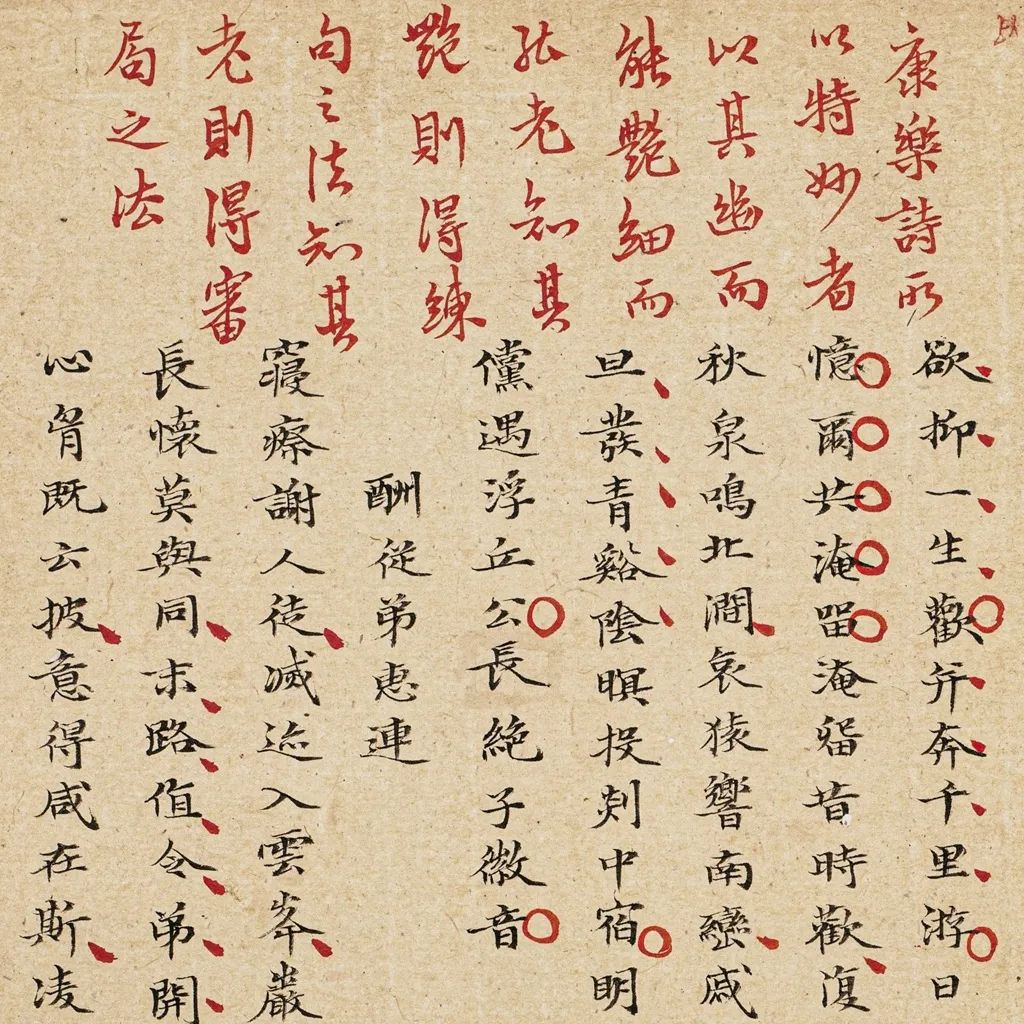 康樂詩所
以特妙者
以其幽而
能艷細而
能老知其
艷則得練
句之法知其
老則得審
局之法
欲抑一生歡并奔千里游日
憶爾共淹留淹留昔時歡復
秋泉鳴北澗哀猿響南巒戚
旦發青谿陰暝投剡中宿明
儻遇浮丘公長絕子徽音
酬從弟惠連
寢瘵謝人徒滅迹入雲峯巖
長懷莫與同末路值令弟開
心胷既云披意得咸在斯凌